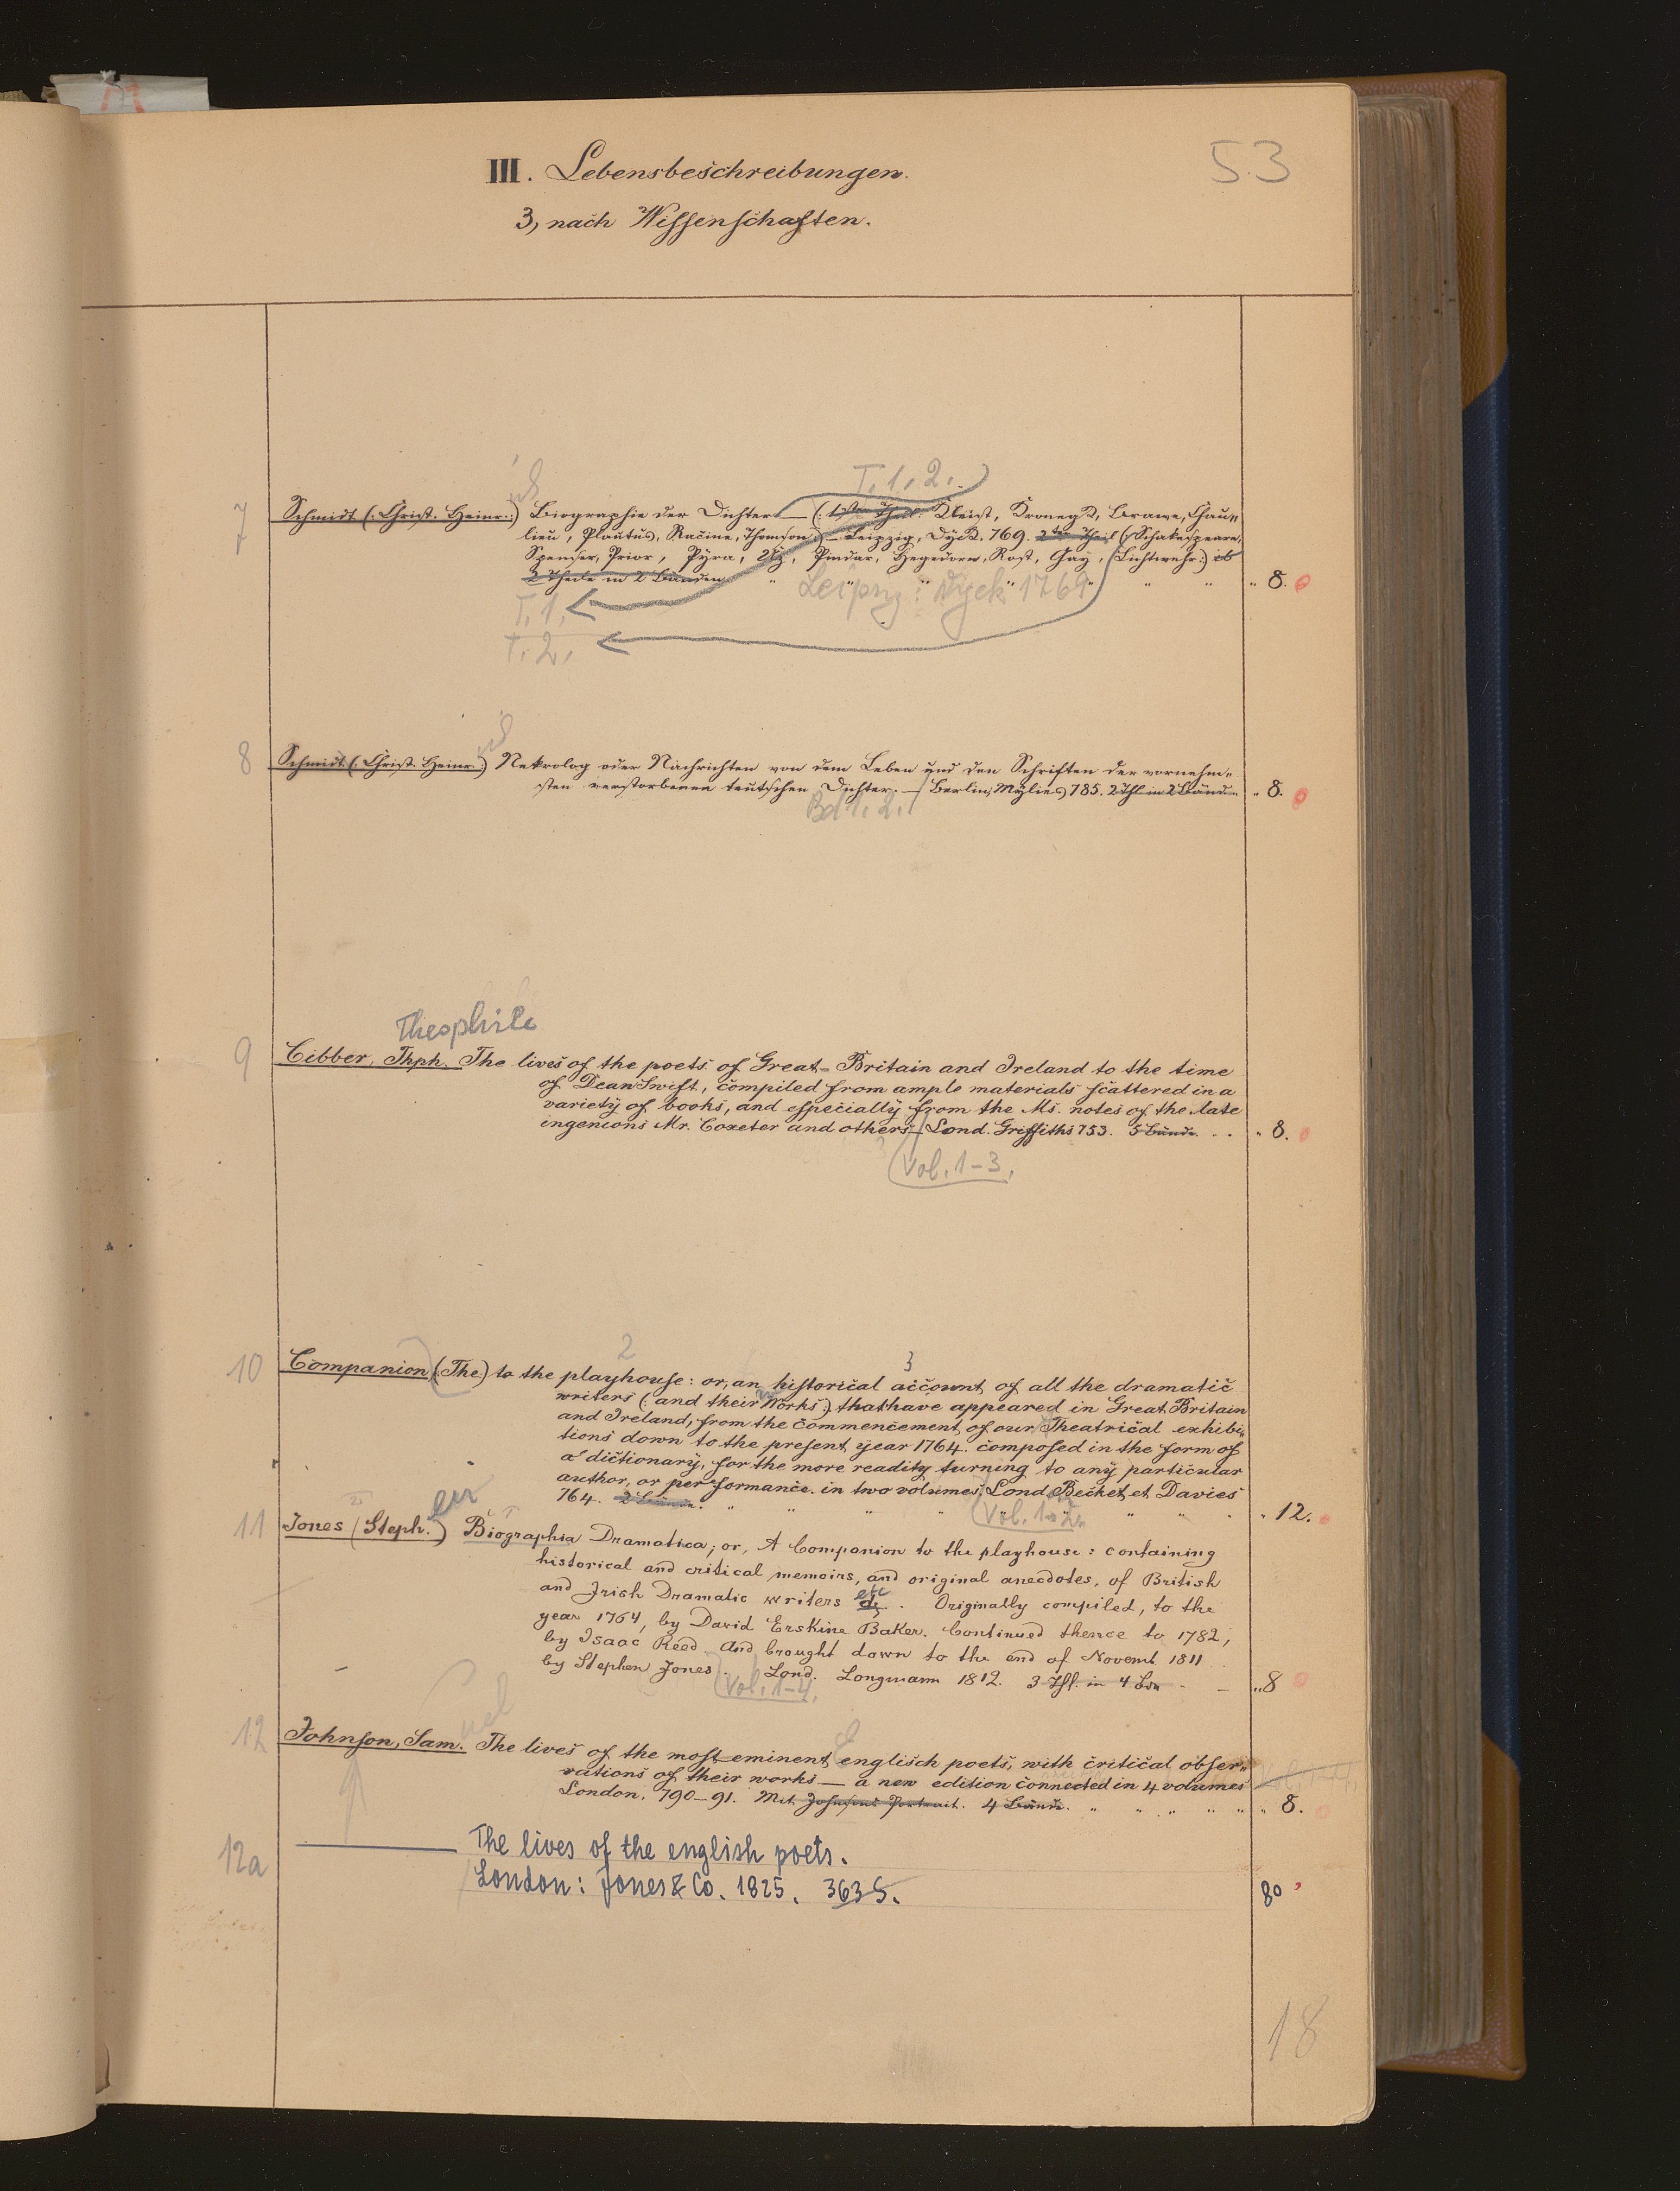 53
III. Lebensbeschreibungen.
3, nach Wissenschaften.
T. 1. 2.
7 Schmidt (: Christ. Heinr. :) Biographie der Dichter — (: 1ster Theil: Kleist, Cronegk, Brawe, Chau„
lieu, Plautus, Racine, Thomson :) — Leipzig, Dyck. 769. 2ter Theil (: Schakespeare,
Spenser, Prior, Pyra, Uz, Pindar, Hagedorn, Rost, Gay, Lichtwehr :) ib
2 Theile in 2 Bänden " " " " " " " " 8.
Leipzig: Dyck 1769
T. 1.
T. 2.
8 Schmidt (: Christ. Heinr. :) Nekrolog oder Nachrichten von dem Leben und den Schriften der vornehm„
sten verstorbenen teutschen Dichter. — Berlin, Mylius 785. 2 Thl in 2 Bänd. " 8.
Bd 1. 2.
Theophile
9 Cibber, Thph. The lives of the poets of Great-Britain and Ireland to the time
of Dean Swift, compiled from ample materials scattered in a
variety of books, and especially from the Ms. notes of the late
ingenions Mr. Coxeter and others — Lond. Griffiths 753. 5 Bände. . . " 8.
Vol. 1-3.
2 3
10 Companion (: The) to the playhouse: or, an historical account of all the dramatic
writers (: and their Works :) that have appeared in Great Britain
and Ireland, from the commencement of our Theatrical exhibi„
tions down to the present year 1764. composed in the form of
a dictionary, for the more readity turning to any particular
author, or performance. in two volumes; Lond. Becket et Davies
764. 2 Bände. " " " " " " " " 12.
Vol. 1-2.
11 Jones (Steph.) Biographia Dramatica; or, A Companion to the playhouse: containing
historical and critical memoirs, and original anecdotes, of British
and Irish Dramatic writers etc . Originally compiled, to the
year 1764, by David Erskine Baker. Continued thence to 1782,
by Isaac Reed And brought down to the end of Novemb. 1811
by Stephen Jones. Lond. Longmann 1812. 3 Thl. in 4 Bdn - - „ 8
Vol. 1-4.
12 Johnson, Sam. The lives of the most eminent englisch poets, with critical obser„
vations of their works — a new edition connected in 4 volumes
London. 790-91. Mit Johnsons Portrait. 4 Bände. " " " " " " 8.
12a ——— The lives of the english poets.
London: Jones & Co. 1825. 363 S. 80
18